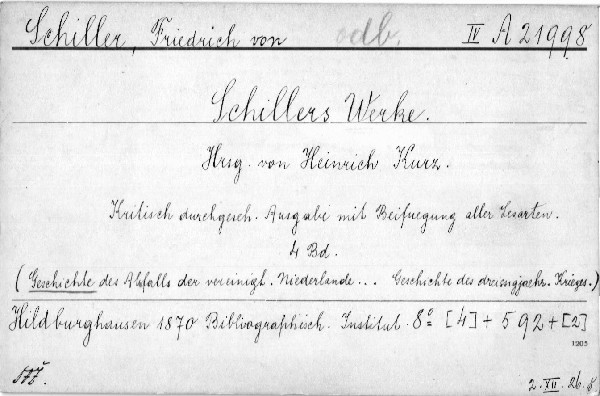 Schiller, Friedrich von odb. IV A 21998
Schillers Werke.
Hrsg. von Heinrich Kurz.
Kritisch durchgeseh. Ausgabe mit Beifuegung aller Lesarten.
4 Bd.
(Geschichte des Abfalls der vereinigt. Niederlande... Geschichte des dreissigjaehr. Krieges.)
Hildburghausen 1870 Bibliographisch. Institut. 8° [4] + 592 + [2]
1205
2. XII. 26.